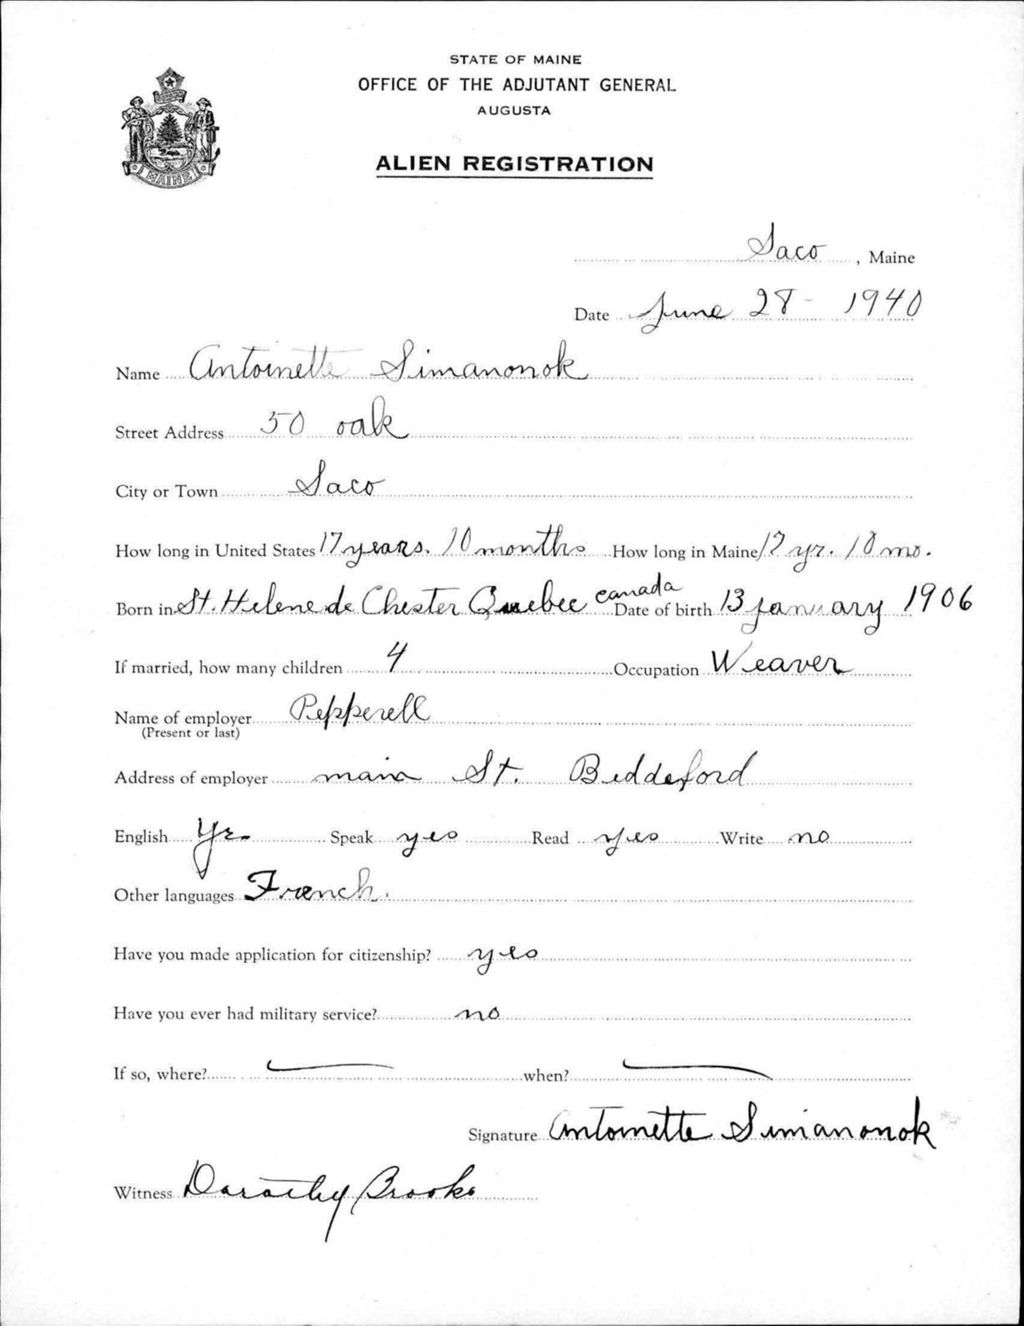 STATE OF MAINE
OFFICE OF THE ADJUTANT GENERAL
AUGUSTA
ALIEN REGISTRATION
MAINE
Saco, Maine
Date June 28 - 1940
Name Antoinette Simanonok
Street Address 50 oak
City or Town Saco
How long in United States 17 years. 10 months How long in Maine 17 yr. 10 mo.
Born in St. Helene de Chester Quebec canada Date of birth 13 january 1906
If married, how many children 4 Occupation Weaver
Name of employer Pepperell
(Present or last)
Address of employer main St. Biddeford
English Yes Speak yes Read yes Write no
Other languages French.
Have you made application for citizenship? yes
Have you ever had military service? no
If so, where? — when? —
Signature Antoinette Simanonok
Witness Dorothy Brooks